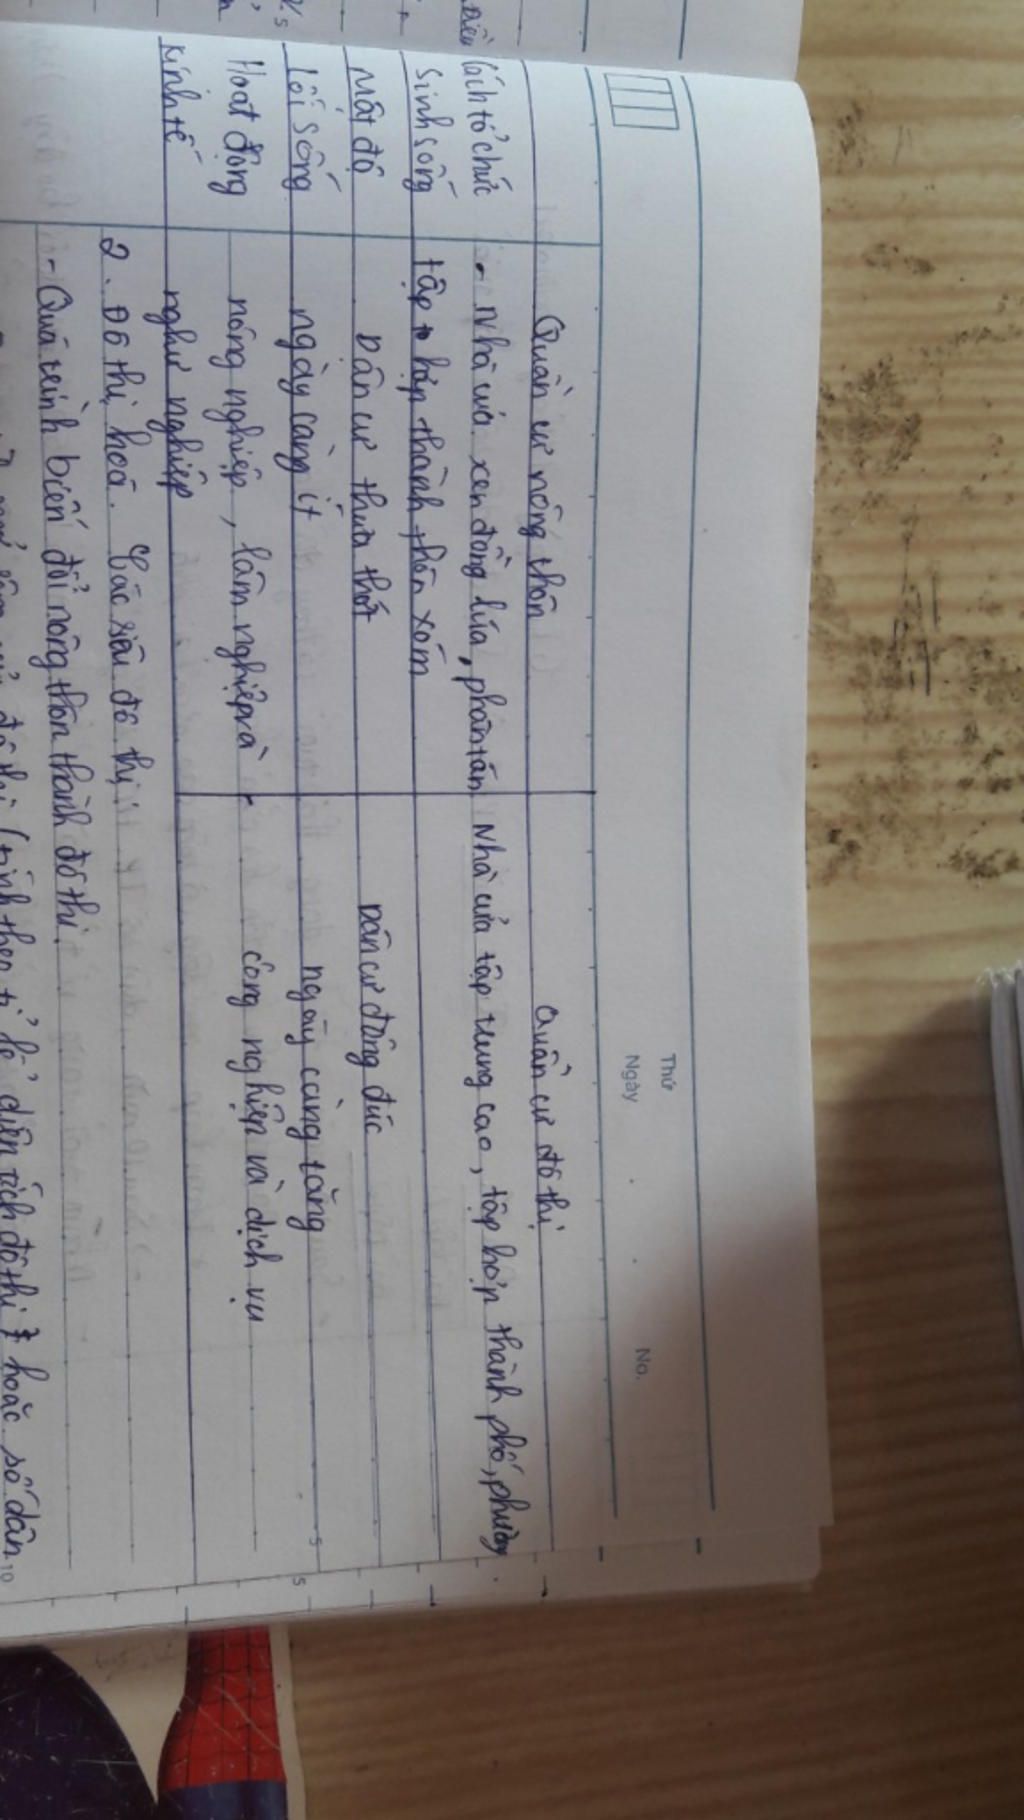 Thứ
Ngày
No.
Quần cư nông thôn
Quần cư đô thị
Cách tổ chức
- Nhà cửa xen đồng lúa, phân tán
Nhà cửa tập trung cao, tập hợp thành phố, phường
sinh sống
tập hợp thành thôn xóm
Mật độ
Dân cư thưa thớt
Dân cư đông đúc
Lối sống
ngày càng ít
ngày càng tăng
Hoạt động
nông nghiệp, lâm nghiệp và
công nghiệp và dịch vụ
kinh tế
ngư nghiệp
2. Đô thị hoá. Các siêu đô thị
- Quá trình biến đổi nông thôn thành đô thị
đô thị (tính theo tỉ lệ diện tích đô thị hoặc số dân
5
5
10